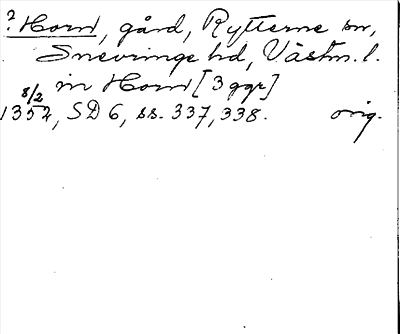 ? Horn, gård, Rytterne sn,
Snevringe hd, Västm. l.
in Horn [3 ggr]
8/2
1352, SD 6, ss. 337, 338. orig.